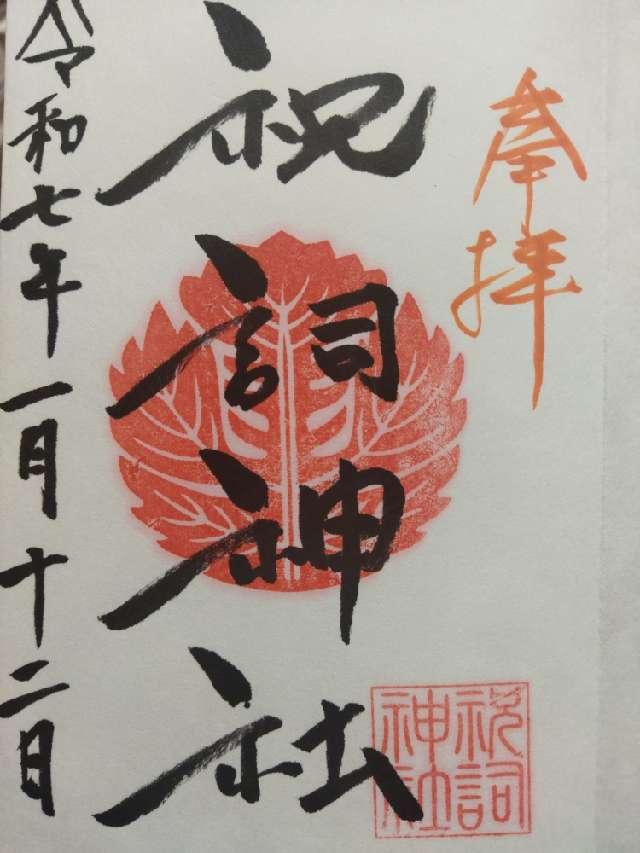 奉拝
祝詞神社
祝詞
神社
令和七年一月十二日